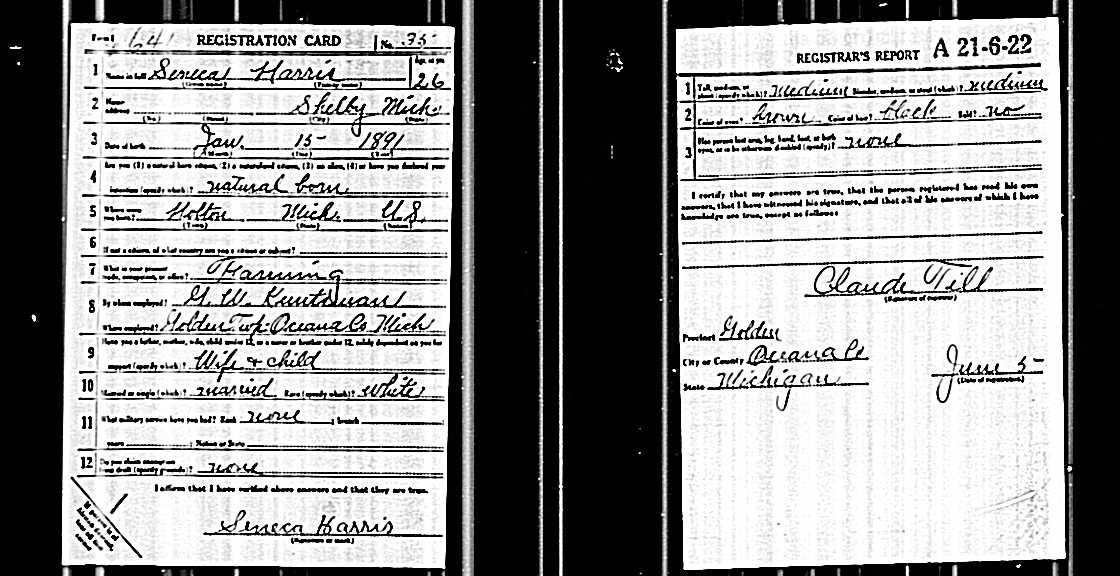 Form 1 641 REGISTRATION CARD No. 35
1 Name in full Seneca Harris Age, in yrs. 26
(Given name) (Family name)
2 Home address Shelby Mich
(No.) (Street) (City) (State)
3 Date of birth Jan. 15 1891
(Month) (Day) (Year)
4 Are you (1) a natural born citizen, (2) a naturalized citizen, (3) an alien, (4) or have you declared your
intention (specify which)? natural born
5 Where were you born? Holton Mich. U.S.
(Town) (State) (Nation)
6 If not a citizen, of what country are you a citizen or subject?
7 What is your present trade, occupation, or office? Farming
8 By whom employed? G. W. Kuntsman
Where employed? Golden Twp. Oceana Co Mich
9 Have you a father, mother, wife, child under 12, or a sister or brother under 12, solely dependent on you for
support (specify which)? Wife & child
10 Married or single (which)? married Race (specify which)? white
11 What military service have you had? Rank none ; branch
years ; Nation or State
12 Do you claim exemption from draft (specify grounds)? none
I affirm that I have verified above answers and that they are true.
Seneca Harris
(Signature or mark)
REGISTRAR'S REPORT A 21-6-22
1 Tall, medium, or short (specify which)? Medium Slender, medium, or stout (which)? medium
2 Color of eyes? brown Color of hair? black Bald? no
3 Has person lost arm, leg, hand, foot, or both
eyes, or is he otherwise disabled (specify)? none
I certify that my answers are true, that the person registered has read his own
answers, that I have witnessed his signature, and that all of his answers of which I have
knowledge are true, except as follows:
Claude Till
(Signature of registrar)
Precinct Golden
City or County Oceana Co
State Michigan
June 5
(Date of registration)